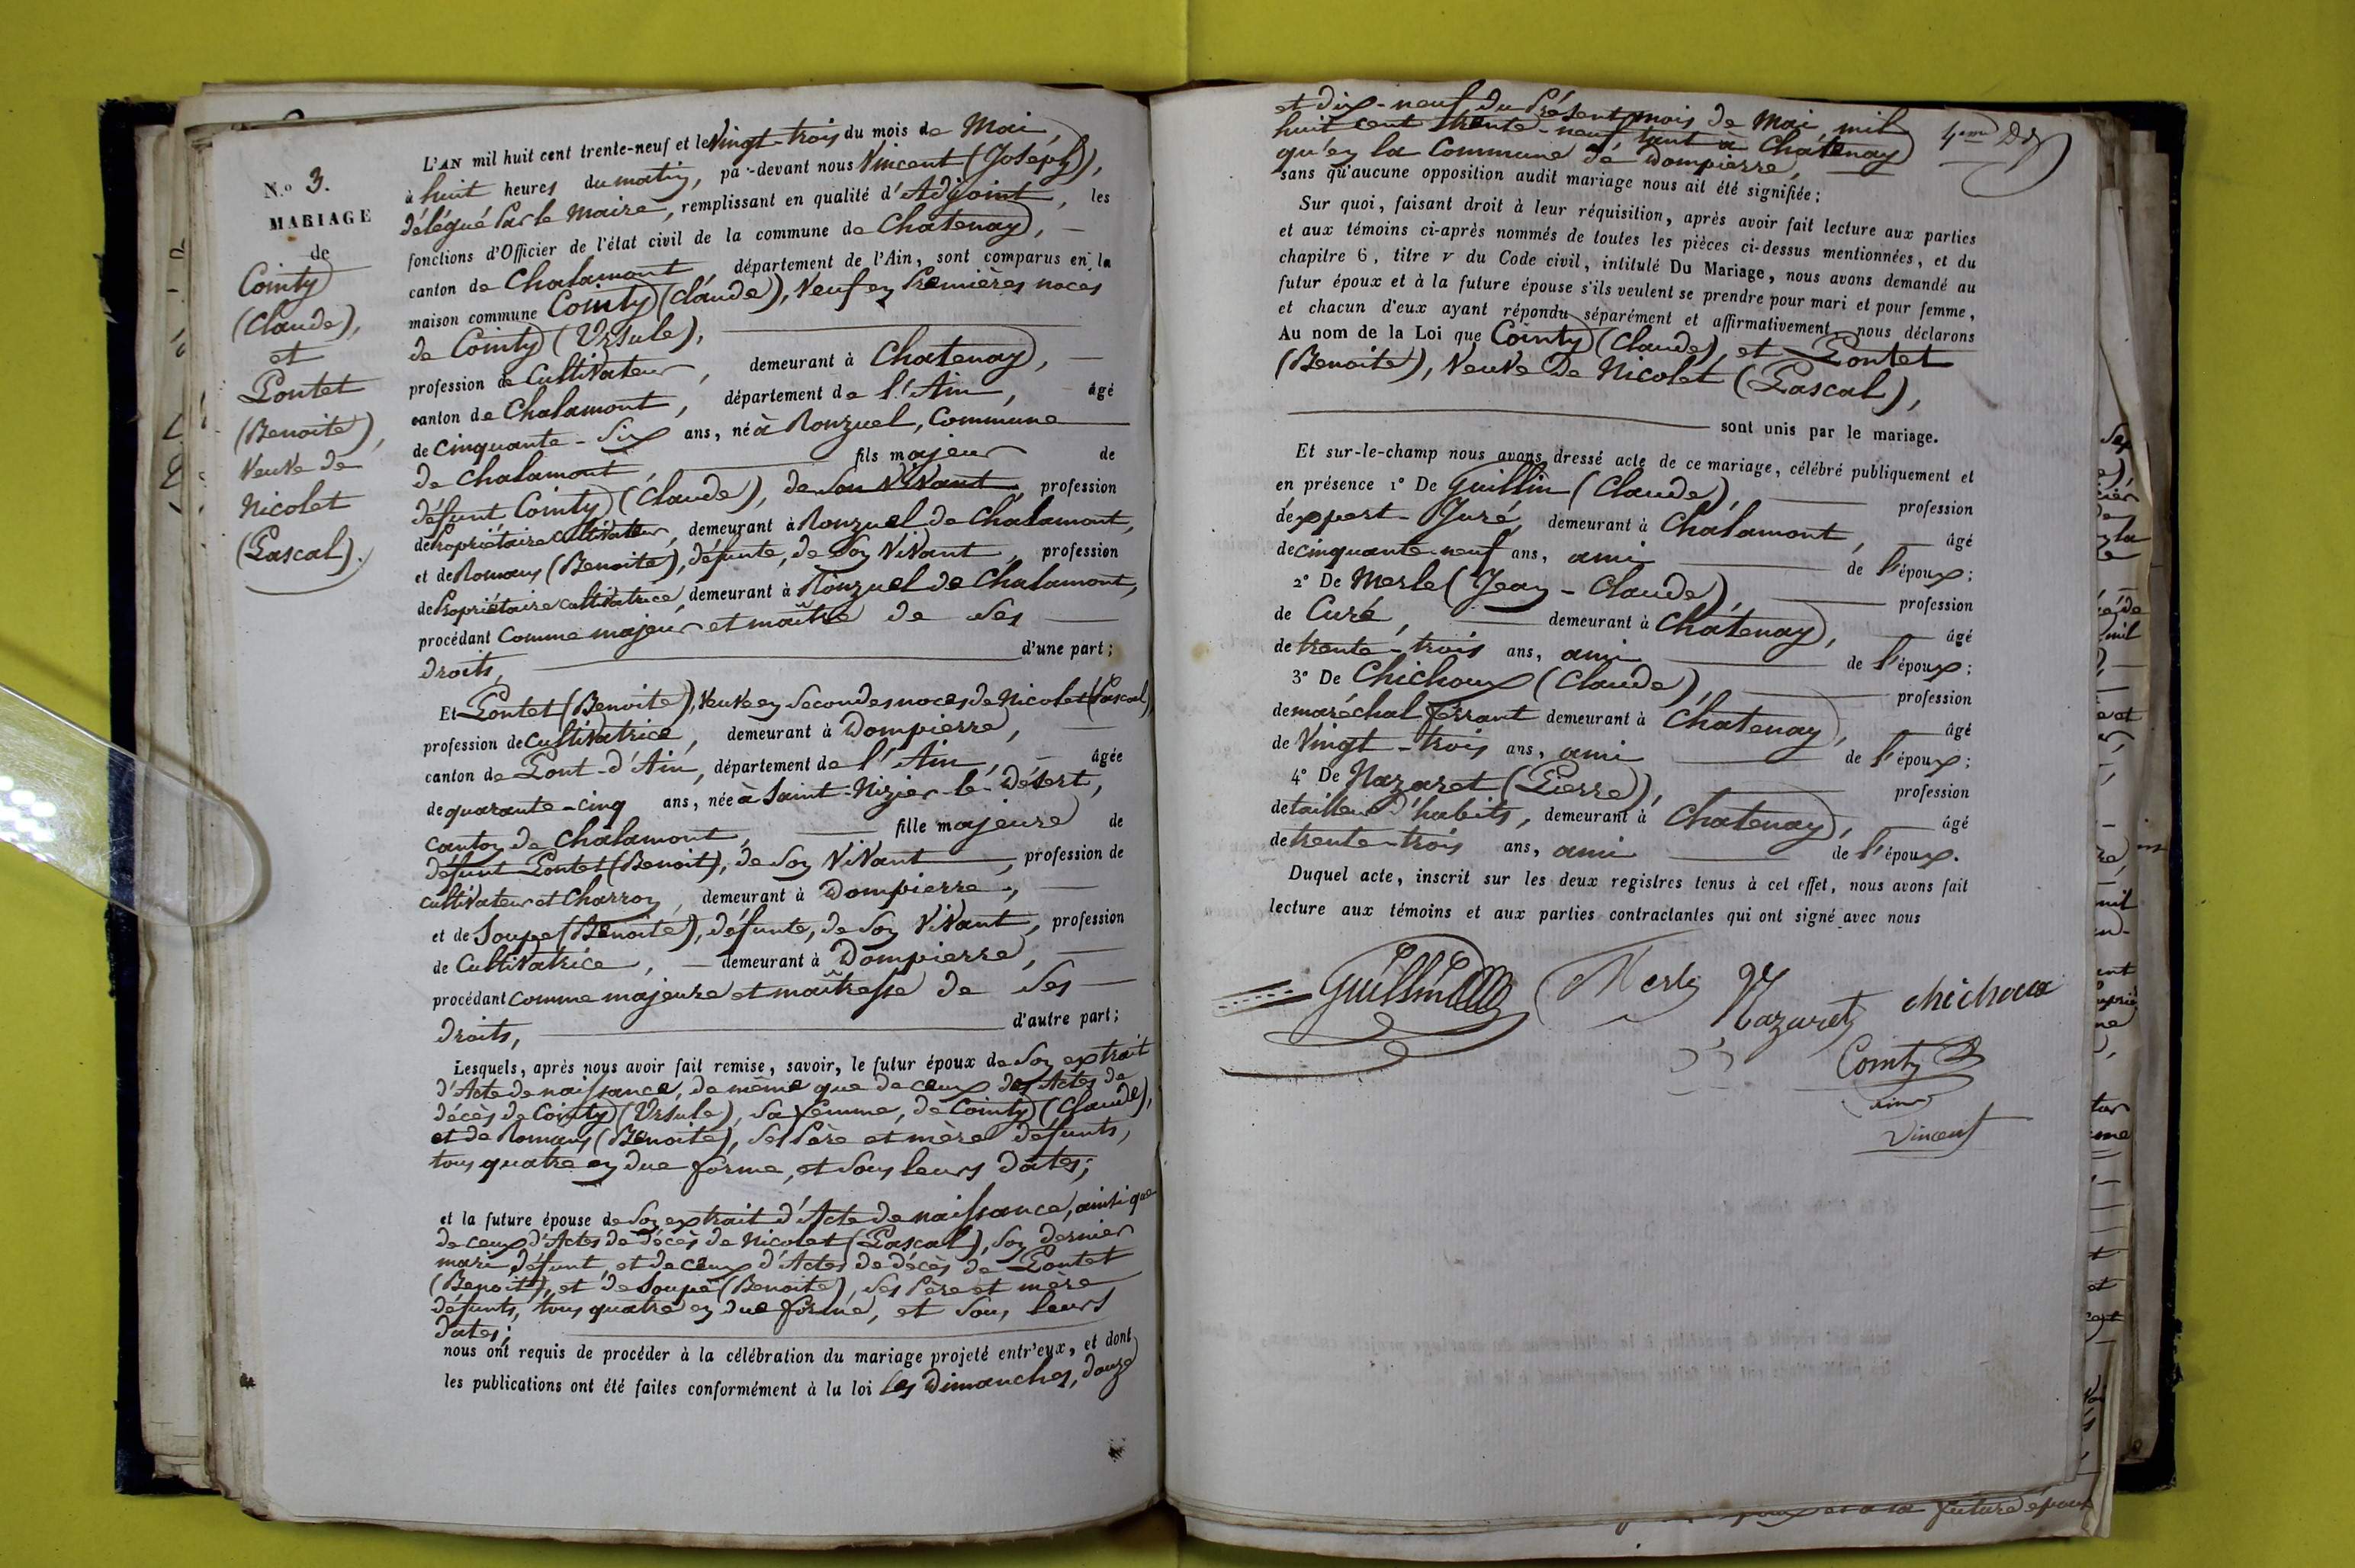 N.o 3.
MARIAGE
de
Cointy
(Claude),
et
Pontet
(Benoite),
Veuve de
Nicolet
(Pascal).
L'AN mil huit cent trente-neuf et le Vingt-trois du mois de Mai,
à huit heures du matin, pa-devant nous Vincent (Joseph),
délégué Par le Maire, remplissant en qualité d'Adjoint, les
fonctions d'Officier de l'état civil de la commune de Chatenay,
canton de Chalamont, département de l'Ain, sont comparus en la
maison commune Cointy (Claude), Veuf en Premières noces
de Cointy (Ursule),
profession de Cultivateur, demeurant à Chatenay,
canton de Chalamont, département de l'Ain, âgé
de cinquante-six ans, né à Ronzuel, Commune
de Chalamont, fils majeur de
défunt Cointy (Claude), de son Vivant, profession
de Propriétaire cultivateur, demeurant à Ronzuel de Chalamont,
et de Romans (Benoite), défunte, de son Vivant, profession
de Propriétaire cultivatrice, demeurant à Ronzuel de Chalamont,
procédant comme majeur et maître de ses
droits, d'une part;
Et Pontet (Benoite), Veuve en secondes noces de Nicolet (Pascal),
profession de cultivatrice, demeurant à Dompierre,
canton de Pont-d'Ain, département de l'Ain, âgée
de quarante-cinq ans, née à Saint-Nizier-le-Désert,
canton de Chalamont, fille majeure de
défunt Pontet (Benoit), de son Vivant, profession de
cultivateur et Charron, demeurant à Dompierre,
et de Soupe (Benoite), défunte, de son Vivant, profession
de Cultivatrice, demeurant à Dompierre,
procédant comme majeure et maîtresse de ses
droits, d'autre part;
Lesquels, après nous avoir fait remise, savoir, le futur époux de son extrait
d'Acte de naissance, de même que de ceux des Actes de
décès de Cointy (Ursule), sa femme, de Cointy (Claude),
et de Romans (Benoite), ses Père et mère défunts,
tous quatre en due forme, et sous leurs dates;
et la future épouse de son extrait d'Acte de naissance, ainsi que
de ceux d'Actes de décès de Nicolet (Pascal), son dernier
mari défunt, et de ceux d'Actes de décès de Pontet
(Benoit), et de Soupe (Benoite), ses Père et mère
défunts, tous quatre en due forme, et sous leurs
dates;
nous ont requis de procéder à la célébration du mariage projeté entr'eux, et dont
les publications ont été faites conformément à la loi les Dimanches, douze
et dix-neuf du Présent mois de Mai, mil
huit cent trente-neuf, tant à Châtenay
qu'en la Commune de Dompierre,
sans qu'aucune opposition audit mariage nous ait été signifiée;
Sur quoi, faisant droit à leur réquisition, après avoir fait lecture aux parties
et aux témoins ci-après nommés de toutes les pièces ci-dessus mentionnées, et du
chapitre 6, titre v du Code civil, intitulé Du Mariage, nous avons demandé au
futur époux et à la future épouse s'ils veulent se prendre pour mari et pour femme,
et chacun d'eux ayant répondu séparément et affirmativement, nous déclarons
Au nom de la Loi que Cointy (Claude), et Pontet
(Benoite), Veuve De Nicolet (Pascal),
sont unis par le mariage.
Et sur-le-champ nous avons dressé acte de ce mariage, célébré publiquement et
en présence 1° De Guillin (Claude), profession
d'expert-Juré, demeurant à Chalamont, âgé
de cinquante-neuf ans, ami de l'époux;
2° De Merle (Jean-Claude), profession
de Curé, demeurant à Châtenay, âgé
de trente-trois ans, ami de l'époux;
3° De Chichoux (Claude), profession
de maréchal ferrant demeurant à Chatenay, âgé
de Vingt-trois ans, ami de l'époux;
4° De Nazaret (Pierre), profession
de tailleur d'habits, demeurant à Chatenay, âgé
de trente-trois ans, ami de l'époux.
Duquel acte, inscrit sur les deux registres tenus à cet effet, nous avons fait
lecture aux témoins et aux parties contractantes qui ont signé avec nous
Guillin Merle Nazaret chichoux
Cointy
Vincent
future épouse